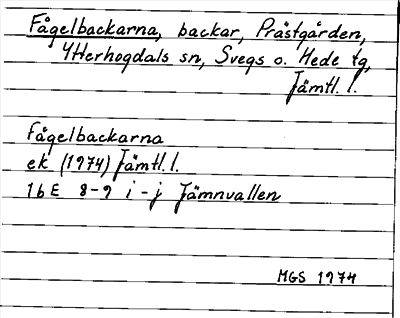 Fågelbackarna, backar, Prästgården,
Ytterhogdals sn, Svegs o. Hede tg,
Jämtl. l.
Fågelbackarna
ek (1974) Jämtl. l.
16E 8-9 i-j Jämnvallen
MGS 1974